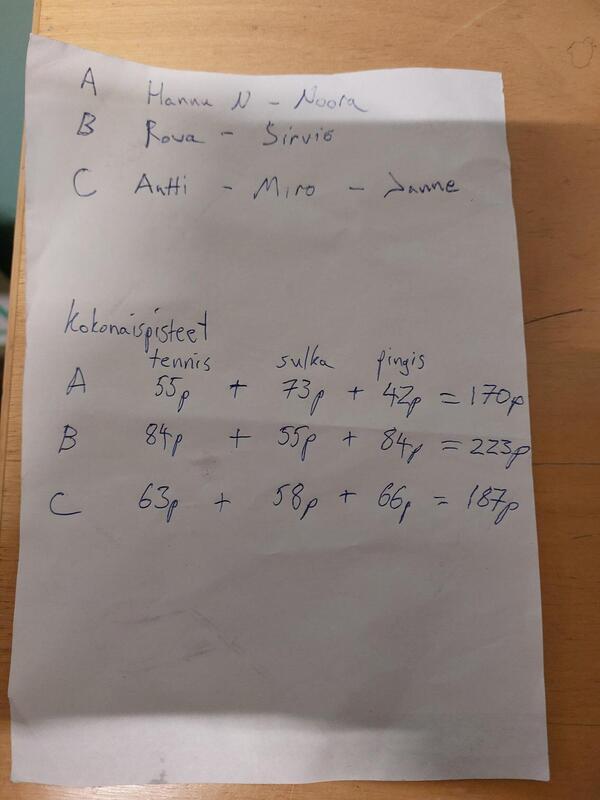 A Hannu N - Noora
B Rowa - Sirviö
C Antti - Miro - Janne
Kokonaispisteet
tennis sulka pingis
A 55p + 73p + 42p = 170p
B 84p + 55p + 84p = 223p
C 63p + 58p + 66p = 187p